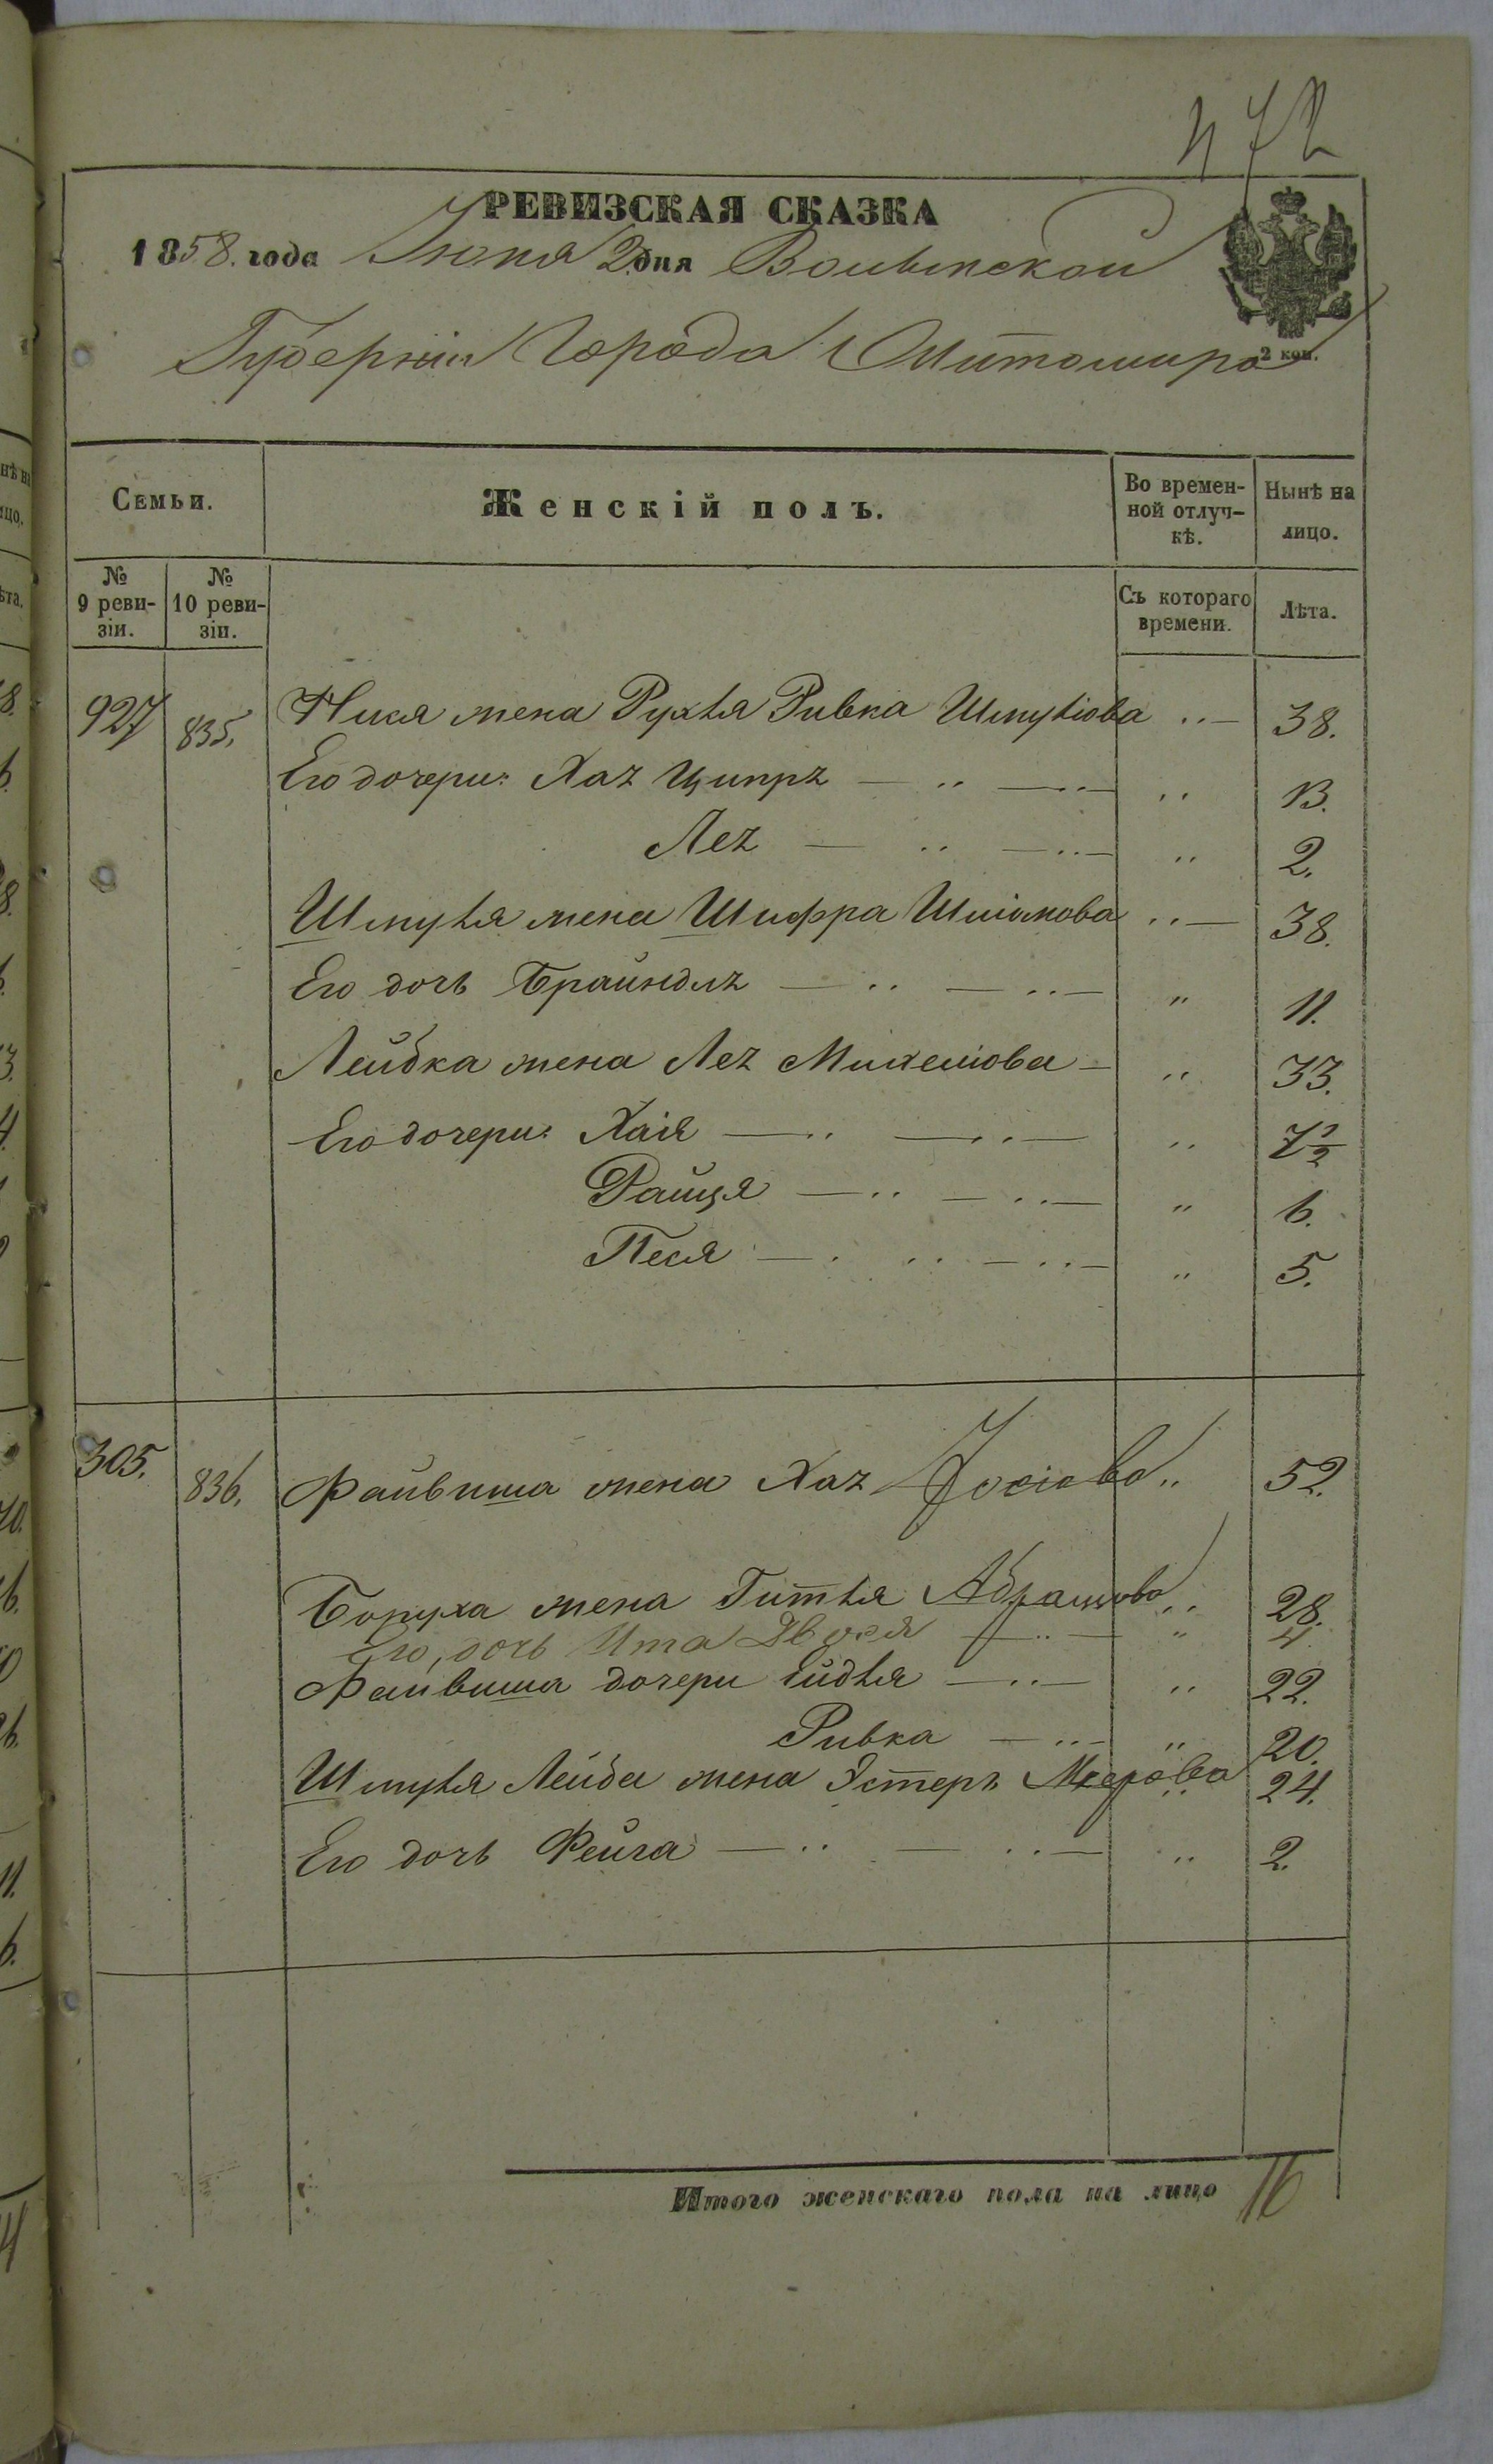 472
РЕВИЗСКАЯ СКАЗКА
1858. года Июня 2 дня Волынской
Губернии Города Житомира
2 коп.
Семьи.
Женскій полъ.
Во времен-
ной отлуч-
кѣ.
Нынѣ на
лицо.
№
9 реви-
зіи.
№
10 реви-
зіи.
Съ котораго
времени.
Лѣта.
927 835. жена Рухля Ривка Шмулiова 38.
Его дочери: Хая Ципра 13.
Лея 2.
Шмуля жена Шифра Шлiомова 38.
Его дочь Брайндля 11.
Лейбка жена Лея Михелiова 33.
Его дочери: Хаiя 7½
Райця 6.
Песя 5.
305. 836. Файвиша жена Хая Iосiова 52.
Боруха жена Гитля Абрамова 28.
Его дочь Ита Двося 4
Файвиша дочери Гидля 22.
Ривка 20.
Шмуля Лейба жена Эстеръ Меерова 24.
Его дочь Фейга 2.
Итого женскаго пола на лицо 16